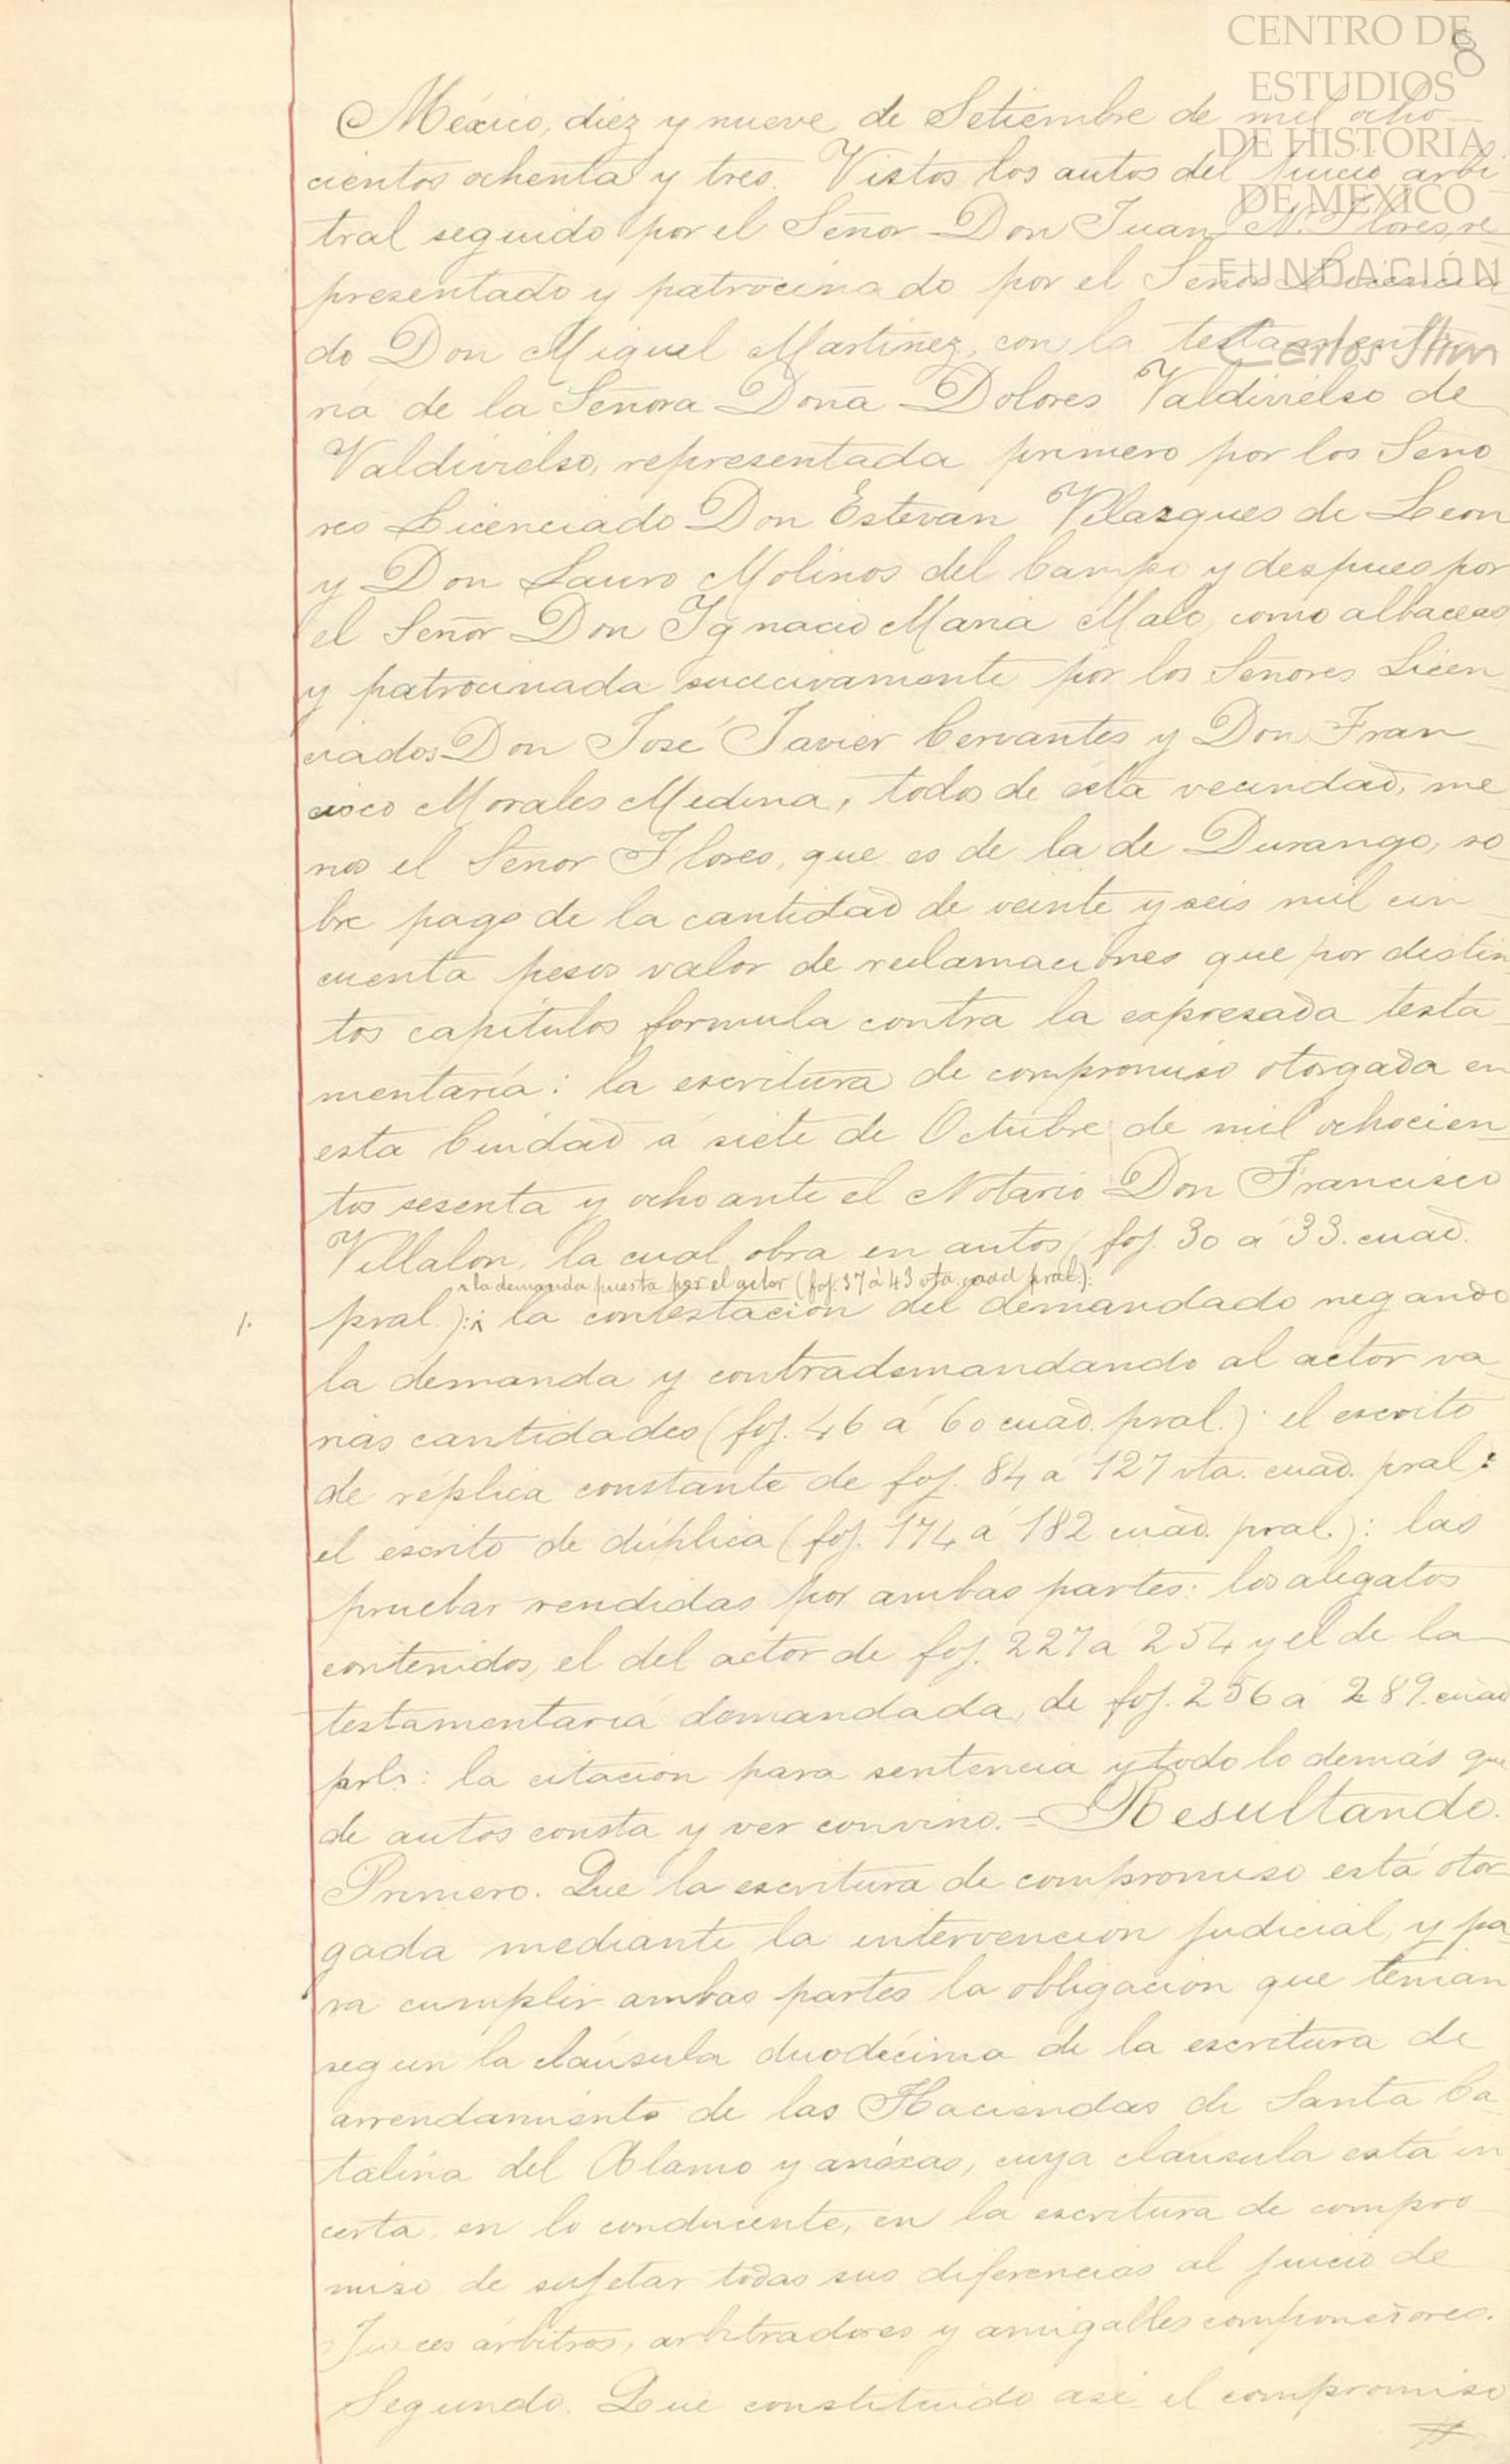 CENTRO DE
ESTUDIOS
DE HISTORIA
DE MEXICO
FUNDACIÓN
Carlos Slim
8
México, diez y nueve de Setiembre de mil ocho
cientos ochenta y tres. Vistos los autos del Juicio arbi
tral seguido por el Señor Don Juan N. Flores, re
presentado y patrocinado por el Señor Licencia
do Don Miguel Martinez, con la testamenta
ria de la Señora Doña Dolores Valdivielso de
Valdivielso, representada primero por los Seño
res Licenciado Don Estevan Velazques de Leon
y Don Lauro Molinos del Campo y despues por
el Señor Don Ignacio Maria Malo, como albaceas
y patrocinada sucecivamente por los Señores Licen
ciados Don José Javier Cervantes y Don Fran
cisco Morales Medina, todos de esta vecindad, me
nos el Señor Flores, que es de la de Durango, so
bre pago de la cantidad de veinte y seis mil cin
cuenta pesos valor de reclamaciones que por distin
tos capitulos formula contra la expresada testa
mentaría: la escritura de compromiso otorgada en
esta Ciudad a siete de Octubre de mil ochocien
tos sesenta y ocho ante el Notario Don Francisco
Villalon, la cual obra en autos (foj. 30 a 33. cuad.
la demanda puesta por el actor (foj. 37 á 43 vta. cuad pral.):
1. pral.): la contestación del demandado negando
la demanda y contrademandando al actor va
rias cantidades (foj. 46 á 60 cuad. pral.): el escrito
de réplica constante de foj. 84 a 127 vta. cuad. pral:
el escrito de dúplica (foj. 174 a 182 cuad. pral.): las
pruebas rendidas por ambas partes: los alegatos
contenidos, el del actor de foj. 227 a 254 y el de la
testamentaría demandada, de foj. 256 a 289. cuad
prls: la citación para sentencia y todo lo demás que
de autos consta y ver convino. = Resultando.
Primero. Que la escritura de compromiso está otor
gada mediante la intervencion judicial, y pa
ra cumplir ambas partes la obligacion que tenian
segun la cláusula duodécima de la escritura de
arrendamiento de las Haciendas de Santa Ca
talina del Alamo y anéxas, cuya clausula está in
certa, en lo conducente, en la escritura de compro
miso de sujetar todas sus diferencias al juicio de
Jueces árbitros, arbitradores y amigables componedores.
Segundo. Que constituido asi el compromiso